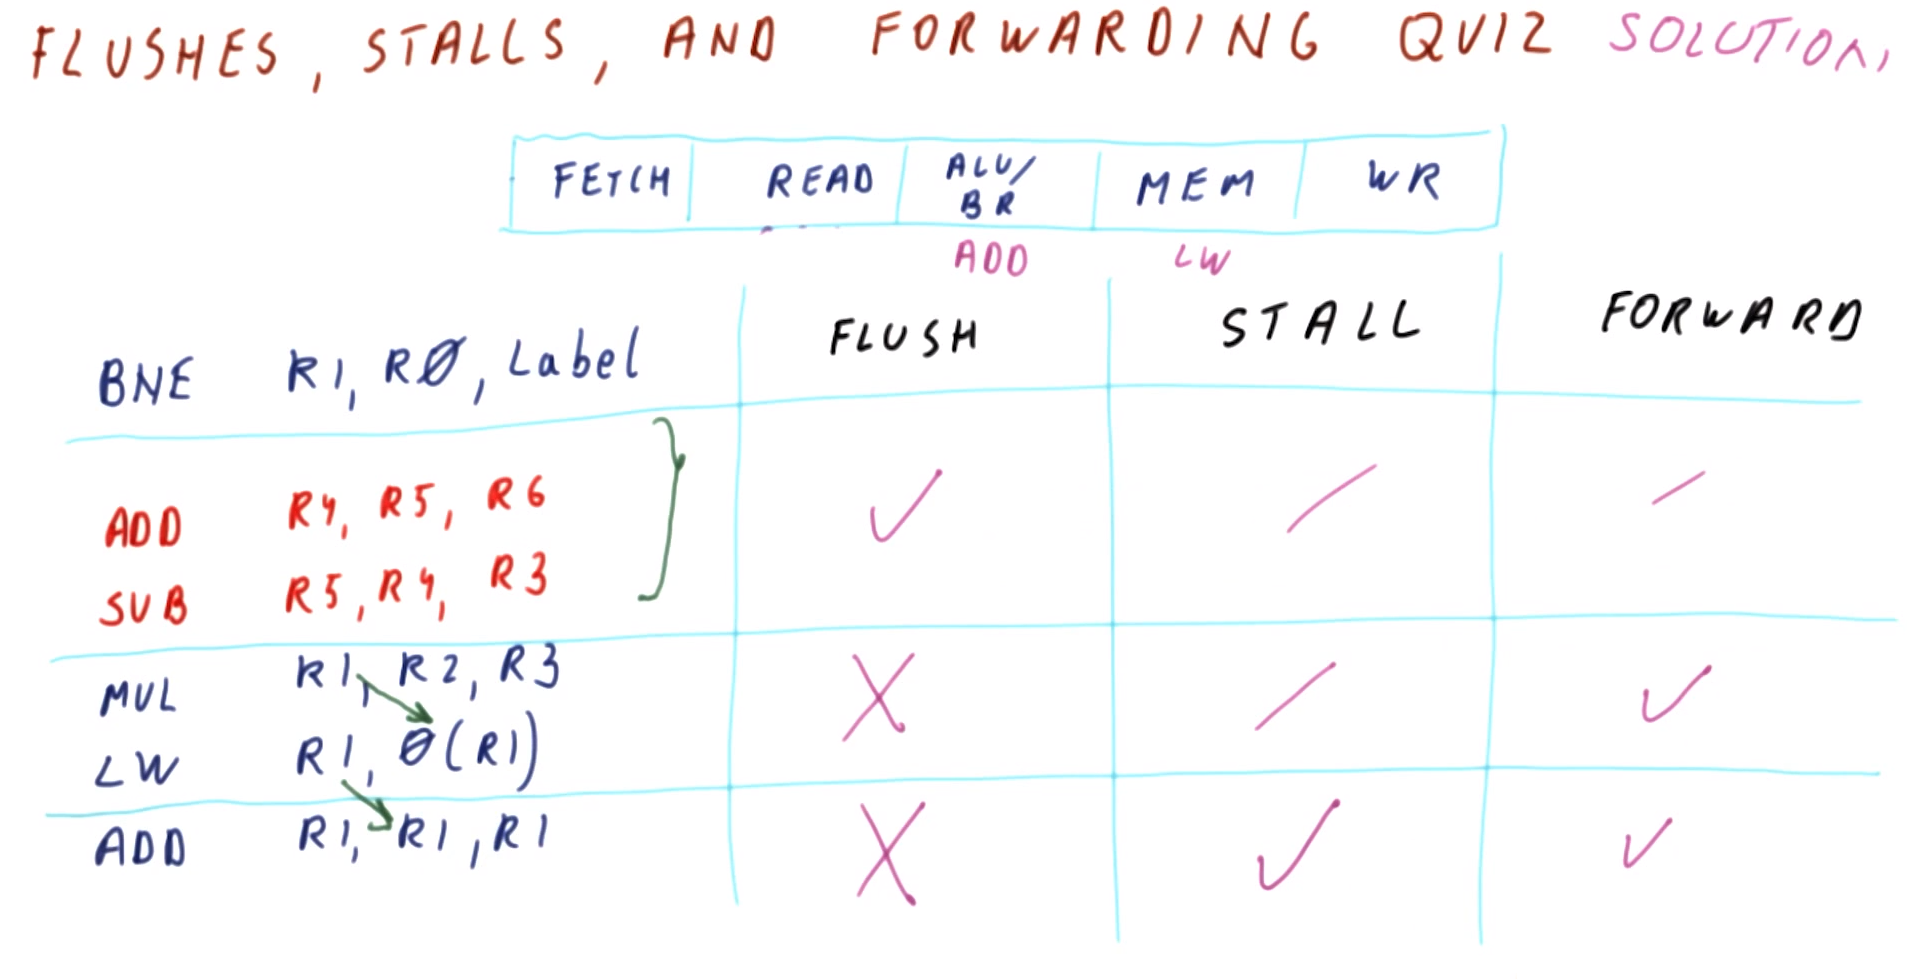 FLUSHES, STALLS, AND FORWARDING QUIZ SOLUTION
FETCH READ ALU/BR MEM WR
ADD LW
FLUSH STALL FORWARD
BNE R1, RØ, Label
ADD R4, R5, R6
SUB R5, R4, R3
MUL R1, R2, R3
LW R1, Ø(R1)
ADD R1, R1, R1